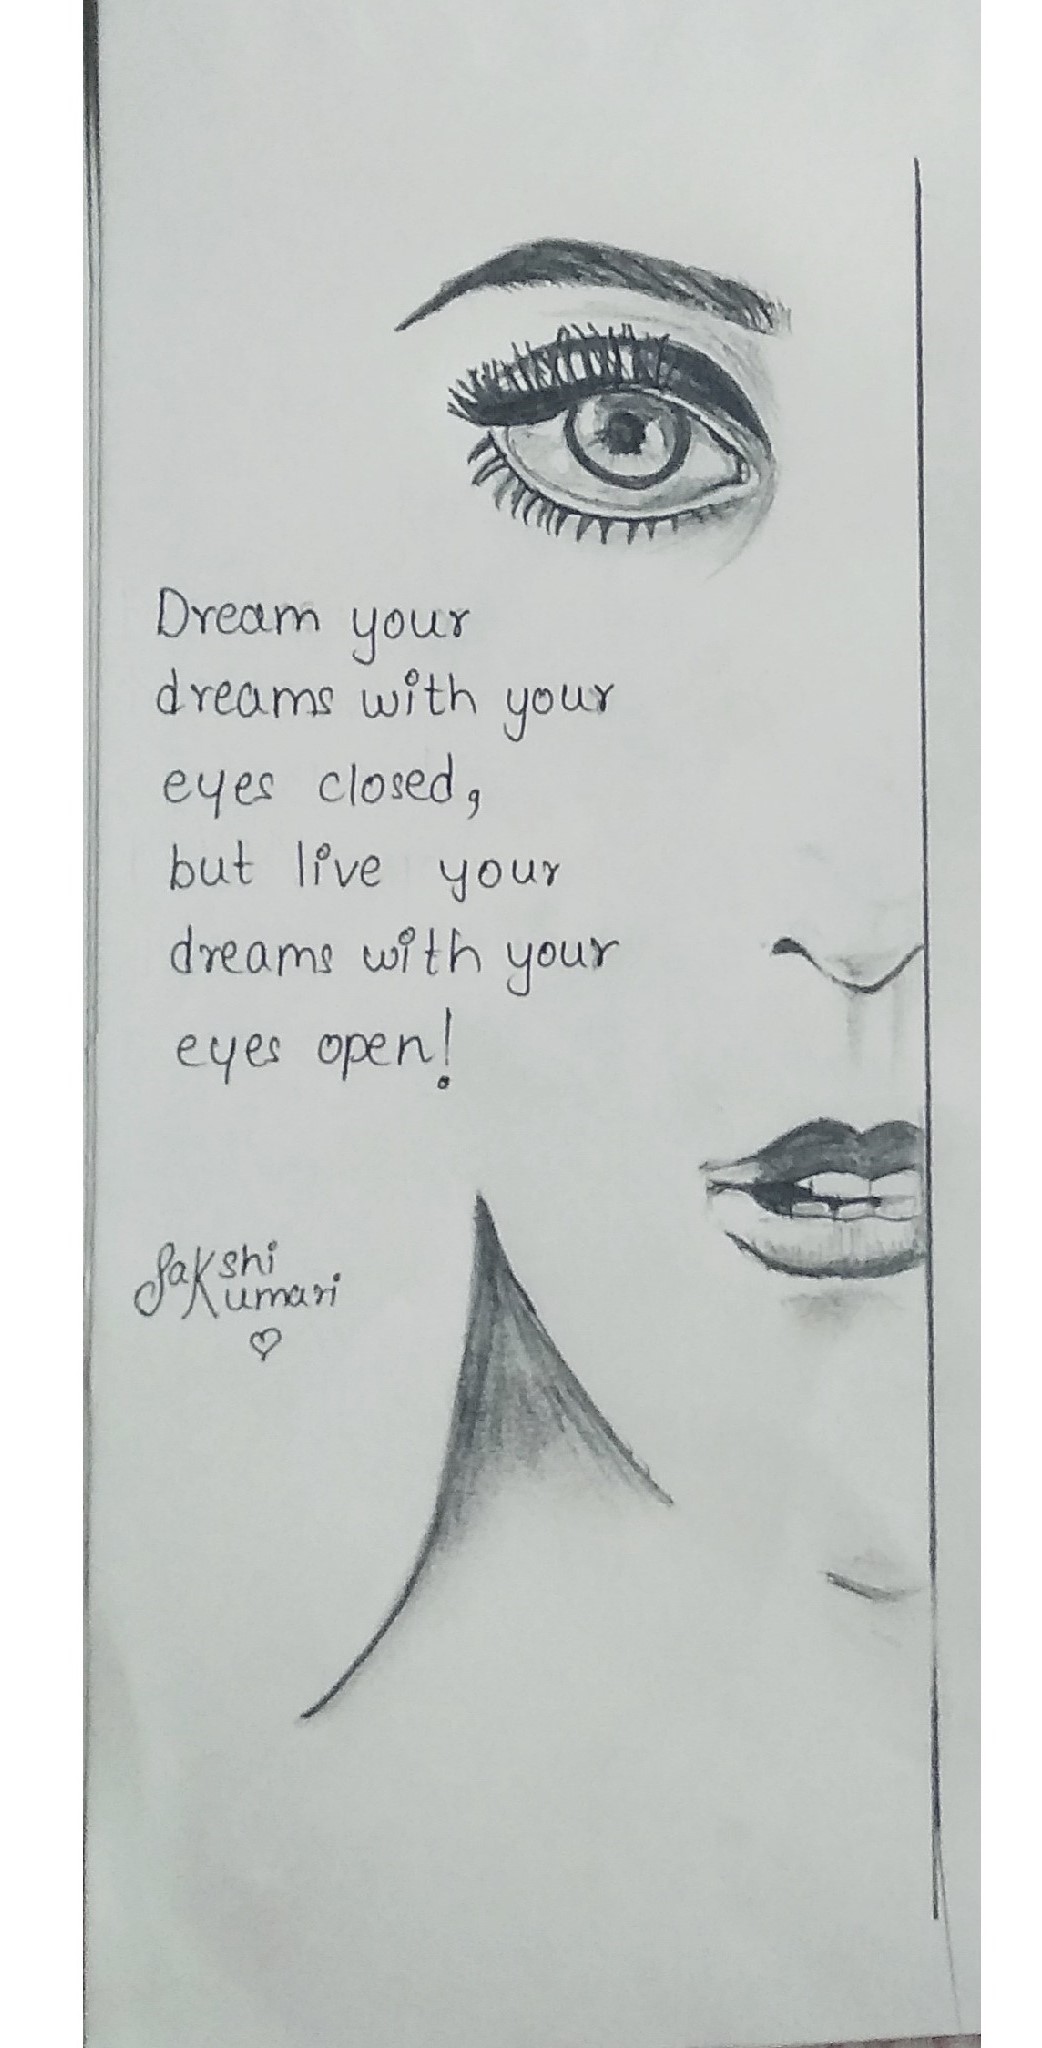 Dream your
dreams with your
eyes closed,
but live your
dreams with your
eyes open!
Sakshi
Kumari